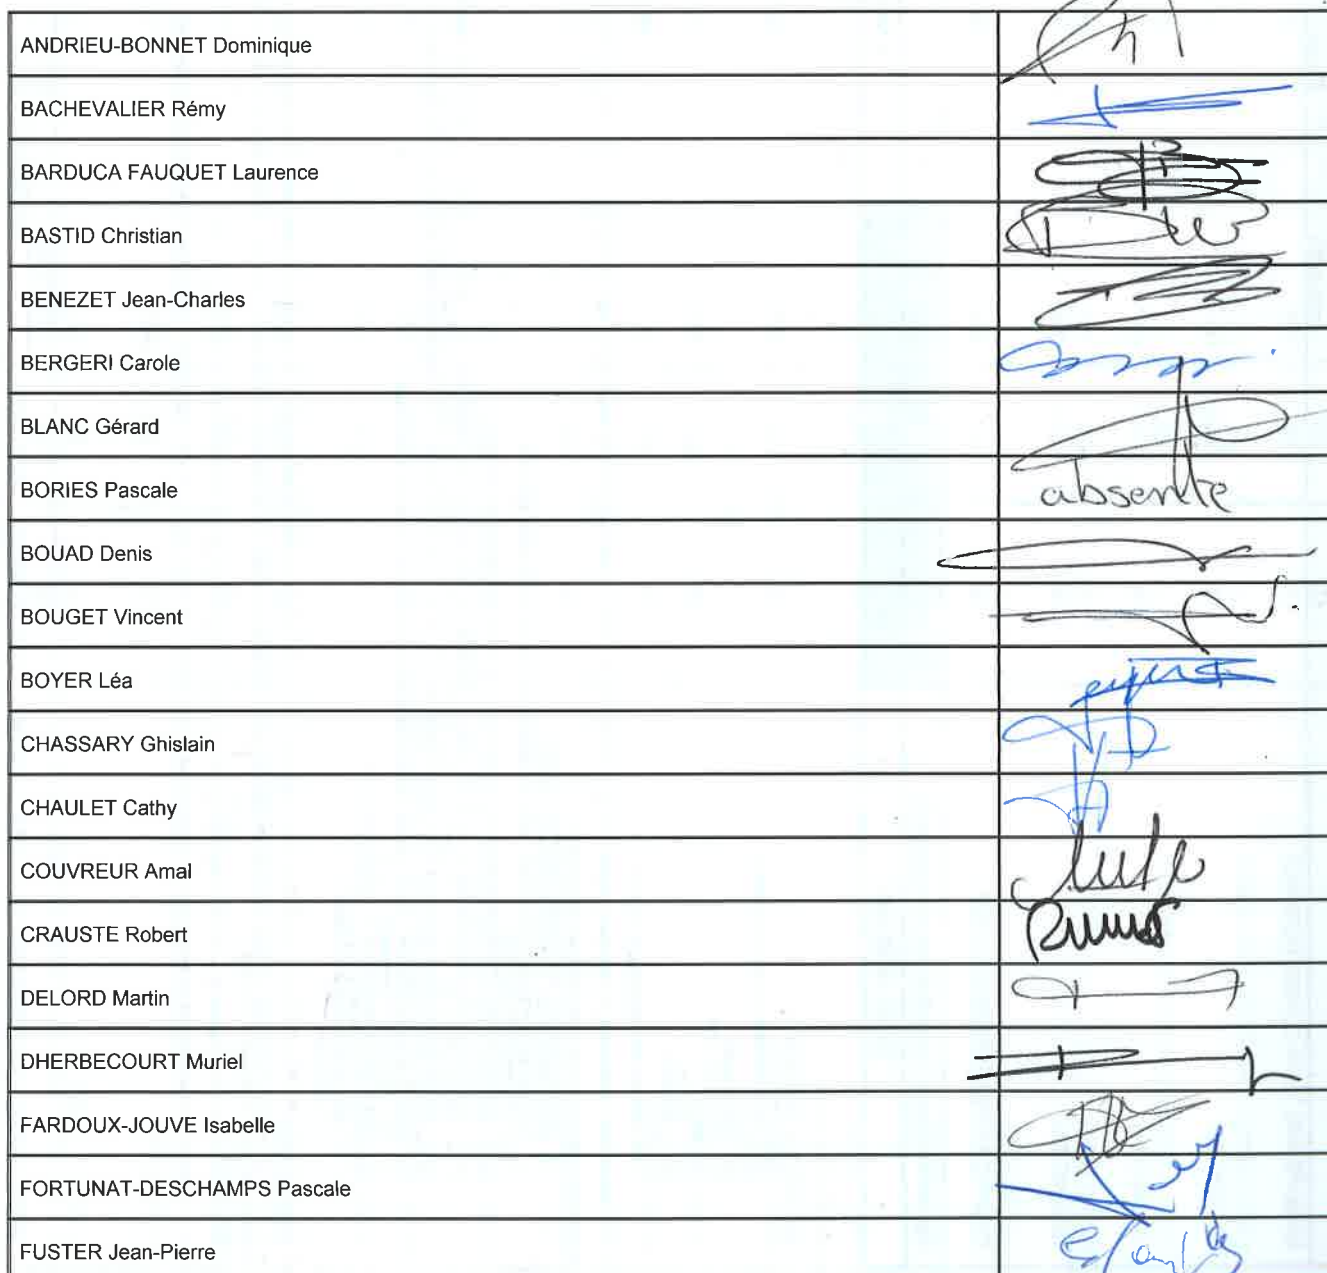 ANDRIEU-BONNET Dominique
BACHEVALIER Rémy
BARDUCA FAUQUET Laurence
BASTID Christian
BENEZET Jean-Charles
BERGERI Carole
BLANC Gérard
BORIES Pascale absente
BOUAD Denis
BOUGET Vincent
BOYER Léa
CHASSARY Ghislain
CHAULET Cathy
COUVREUR Amal
CRAUSTE Robert
DELORD Martin
DHERBECOURT Muriel
FARDOUX-JOUVE Isabelle
FORTUNAT-DESCHAMPS Pascale
FUSTER Jean-Pierre